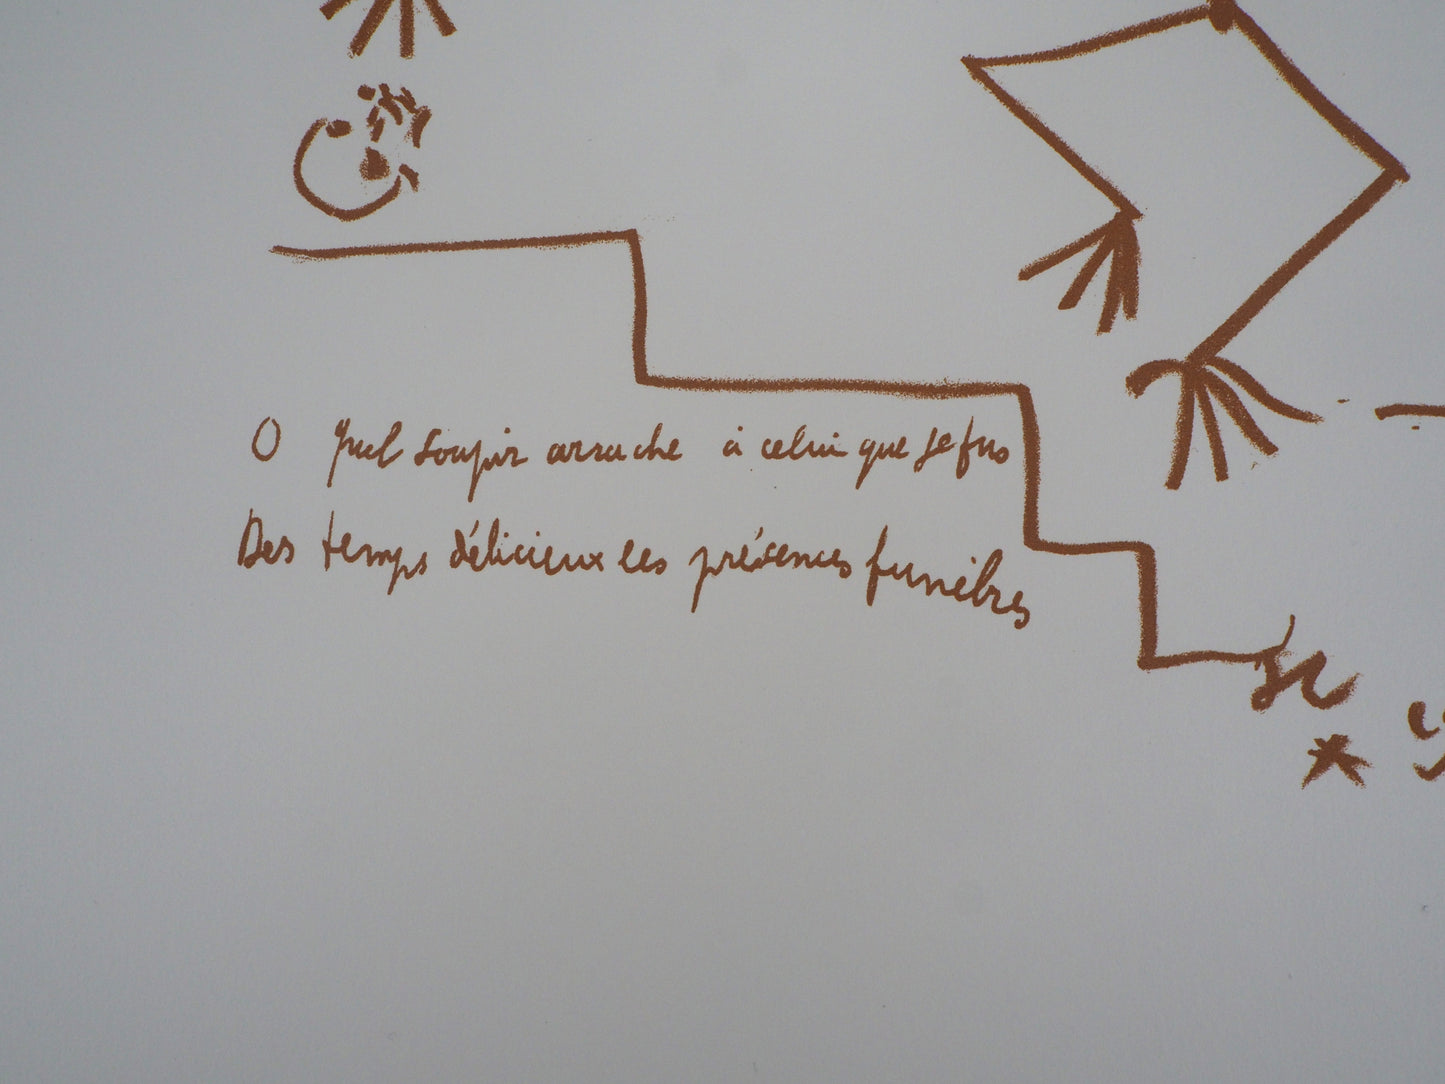 O quel soupir arrache à celui que je fus
Des temps délicieux les présences funèbres